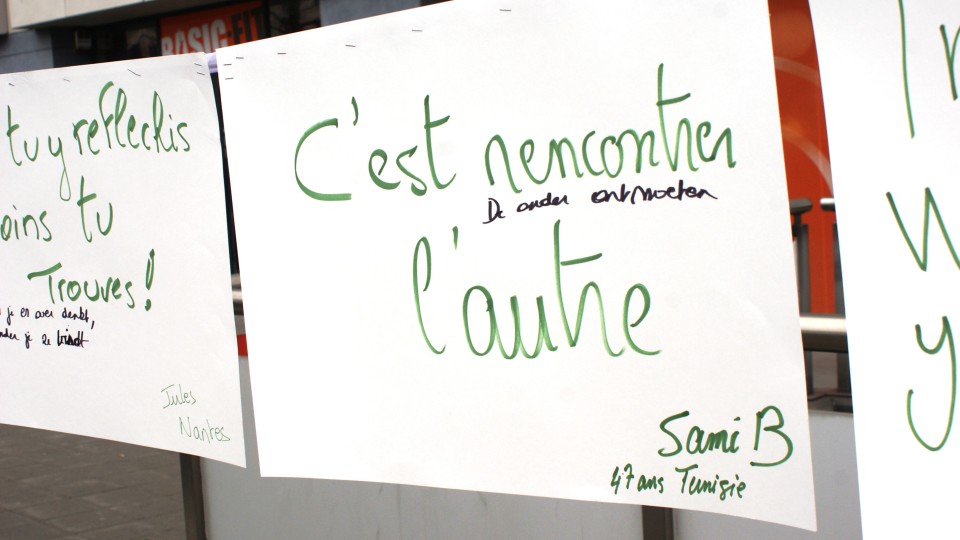 BASIC-FIT
tu y reflechis
oins tu
Trouves!
je er over denkt,
je ze vindt
Jules
Nantes
C'est rencontrer
De ander ontmoeten
l'autre
Sami B
47 ans Tunisie
y